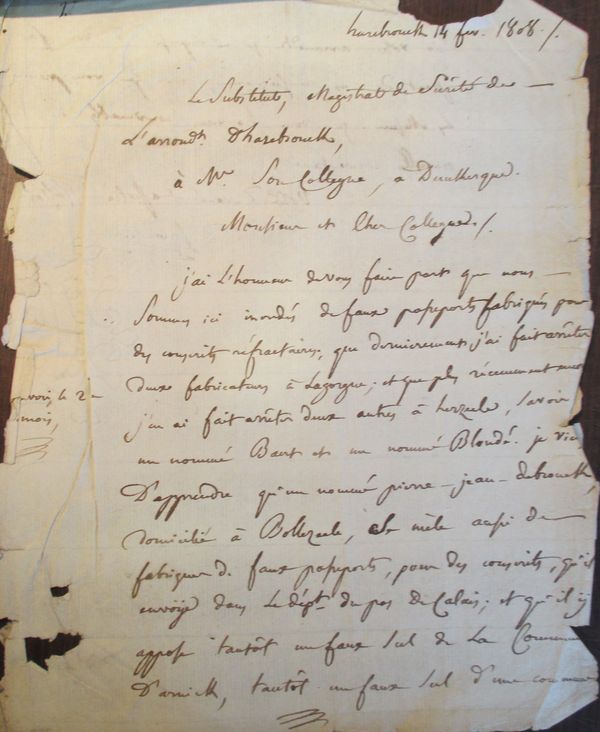 hazebrouck 14 fev. 1808./.
Le Substitut, Magistrat de Sûreté de
L'arrondt. D'hazebrouck,
à Mr. Son Collegue, a Dunkerque.
Monsieur et Cher Collegue./.
j'ai L'honneur de vous faire part que nous
Sommes ici inondés de faux passeports fabriqués pour
des conscrits réfractaires; que dernierement j'ai fait arrêter
deux fabricateurs à Lagorgue; et que plus récemment encore
savoir, le 2 de
j'en ai fait arrêter deux autres à herzeele, Savoir
mois,
un nommé Baert et un nommé Blondé. je viens
D'apprendre qu'un nommé pierre-jean-debrouck,
domicilié à Bollezeele, se mêle aussi de
fabriquer de faux passeports, pour des conscrits, qu'il
envoye dans Le dépt. du pas de Calais; et qu'il y
appose tantôt un faux Scel de La Commune
D'arnick, tantôt un faux Scel d'une commune